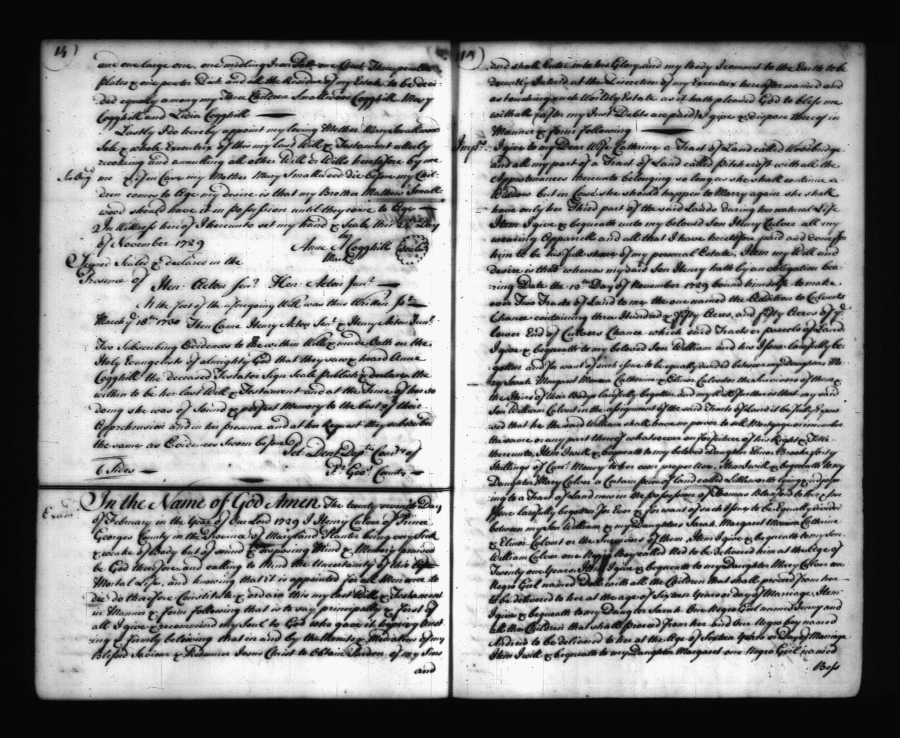 14)
one one large one, one midling Iron Pott one Chest Three pewter
plates & one pewter Dish and all the Residue of my Estate to be devi-
ded equaly among my Three Children Smallwood Cogghill Mary
Cogghill and Lidia Cogghill
Lastly I do hereby appoint my loving Mother Mary Smallwood
Sole & whole Executrix of this my last Will & Testament utterly
revoking and annulling all other Will & Wills heretofore by me
me & if in Case my Mother Mary Smallwood die before my Chil-
dren comes to Age my desire is that my Brother Matthew Small
wood should have it in possession until they come to Age
In Witness hereof I hereunto set my hand & Seale this Day
of November 1729
Anne A Cogghill Seale
Mark
Signed Sealed & declared in the
Presence of
Hen: Acton Senr. Hen: Acton Junr.
At the foot of the aforegoing Will was thus Written
March ye 18th 1730 Then Came Henry Acton Senr. & Henry Acton Junr.
Two Subscribing Evidences to the within Will & made Oath on the
Holy Evangelists of almighty God that they saw & heard Anne
Cogghill the deceased Testator Sign Seale Publish & declare the
within to be her last Will & Testament and at the Time of her so
doing she was of Sound & perfect Memory to the best of their
Apprehension and in her presence and at her Request they subscribed
the same as Evidences Sworn before
Pet: Dent Depty. Comry. of
Pr. Geos. County
6 Sides
Exam
In the Name of God Amen The twenty second Day
of February in the Year of Our Lord 1729 I Henry Culver of Prince
Georges County in the Province of Maryland Planter being very Sick
& weake of Body but of sound & disposing Mind & Memory praised
be God therefore and calling to Mind the Uncertainty of this Life
Mortal Life, and knowing that it is appointed for all Men once to
die do therefore Constitute & ordain this my last Will & Testament
in Manner & form following that is to say principally & first of
all I give & recommend my Soul to God who gave it hoping trust
ing & firmly believing that in and by the Merits & Mediation of my
Blessed Saviour & Redeemer Jesus Christ to Obtain Pardon of my Sins
and
15)
and shall Enter into his Glory and my Body I commit to the Earth to be
decently Interred at the Discretion of my Executrix hereafter named and
as touching such Worldly Estate as it hath pleased God to bless me
withall (after my Just Debts are paid) I give & dispose thereof in
Manner & form following
Imps.
I give to my Dear Wife Catherine a Tract of Land called Woodbridge
and all my part of a Tract of Land called Pitchcraft with all the
Appurtenances thereunto belonging so long as she shall continue a
Widdow but in Case she should happen to Marry again she shall
have only her Third part of the said Lands during her natural Life
Item I give & bequeath unto my beloved Son Henry Culver all my
wearing Apparrell and all that I have heretofore paid and done for
him to be his full share of my personal Estate. Item my Will and
desire is that whereas my said Son Henry hath by an Obligation bea-
ring Date the 10th Day of November 1729 bound himself to make
over Two Tracts of Land to me the one named the Addition to Culvers
Chance containing three Hundred & Fifty Acres, and fifty Acres of ye
lower End of Culvers Chance which said Tracts or parcels of Land
I give & bequeath to my beloved Son William and his Issue lawfully be-
gotten and for want of such issue to be equally devided between my Daughters Ma
ry Sarah Margaret Monica Catherine & Elinor Culver the Survivors of them &
the Heirs of their Bodys lawfully begotten and my Will further is that my said
Son William Culver in the assignment of the said Tracts of Land it be fully Expres
sed that he the said William shall have no power to sell Mortgage or incumber
the same or any part thereof whatsoever on forfeiture of his Right & Title
thereunto, Item I will & bequeath to my beloved Daughter Elinor Brooke forty
Shillings of Curt. Money to her own proper use. Item I will & bequeath to my
Daughter Mary Culver a Certain piece of land called Littleworth lying adjoyn-
ing to a Tract of Land now in the possession of Thomas Blanford to her & her
Issue lawfully begotten for Ever & for want of such Issue to be Equally divided
between my Son William & my Daughters Sarah Margaret Monica Catherine
& Elinor Culver or the Survivors of them Item I give & bequeath to my Son
William Culver one Negro Boy called Ned to be delivered him at the Age of
Twenty one Years Item I give & bequeath to my Daughter Mary Culver one
Negro Girl named with all the Children that shall proceed from her
to be delivered to her at the age of Sixteen Years or day of Marriage Item
I give & bequeath to my Daughter Sarah One Negro Girl named Jenny and
all the Children that shall proceed from her and One Negro boy named
to be delivered to her at the Age of Sixteen Years or Day of Marriage
Item I will & bequeath to my Daughter Margaret one Negro Girl named
Bess